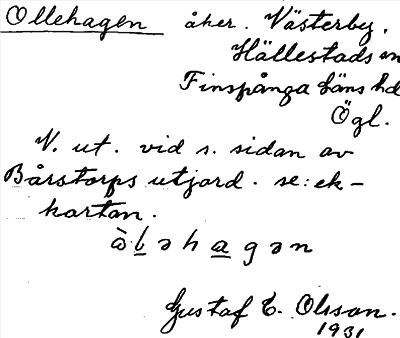 Ollehagen åker. Västerby,
Hällestads sn
Finspånga läns hd
Ögl.
V. ut. vid s. sidan av
Bårstorps utjord. se: ek-
kartan.
Gustaf E. Olsson.
1931